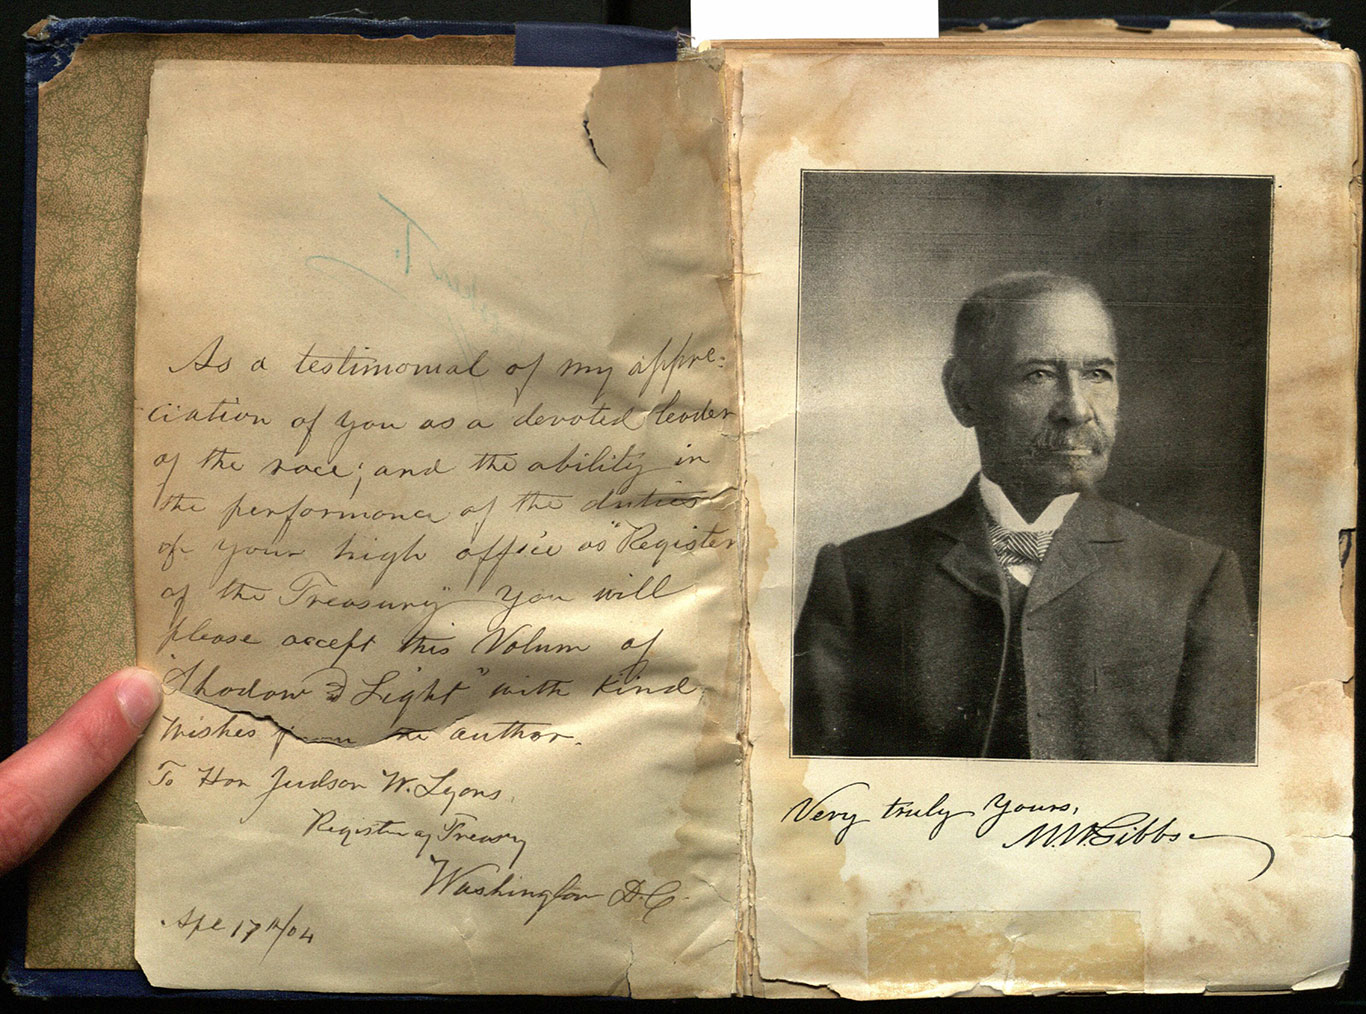 As a testimonial of my appre-
ciation of you as a devoted leader
of the race; and the ability in
the performance of the duties
of your high office as "Register
of the Treasury" You will
please accept this Volum of
"Shadow & Light" with kind
wishes from the author.
To Hon Judson W. Lyons,
Register of Treasury
Washington D.C.
Apl 17th/04
Very truly Yours,
M.W. Gibbs